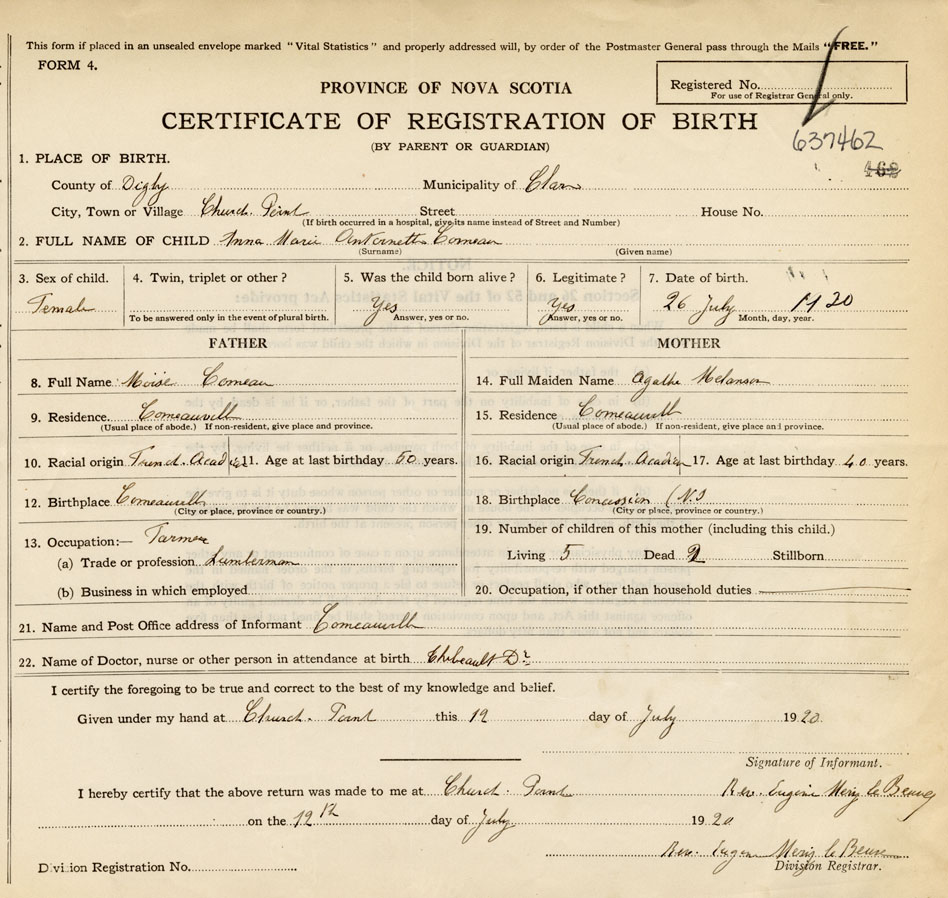 This form if placed in an unsealed envelope marked "Vital Statistics" and properly addressed will, by order of the Postmaster General pass through the Mails "FREE."
FORM 4.
Registered No.
For use of Registrar General only.
PROVINCE OF NOVA SCOTIA
CERTIFICATE OF REGISTRATION OF BIRTH
637462
(BY PARENT OR GUARDIAN)
468
1. PLACE OF BIRTH.
County of Digby Municipality of Clare
City, Town or Village Church Point Street House No.
(If birth occurred in a hospital, give its name instead of Street and Number)
2. FULL NAME OF CHILD Anna Marie Antoinette Comeau
(Surname) (Given name)
3. Sex of child. 4. Twin, triplet or other? 5. Was the child born alive? 6. Legitimate? 7. Date of birth.
Female Yes Yes 26 July 1920
To be answered only in the event of plural birth. Answer, yes or no. Answer, yes or no. Month, day, year.
FATHER MOTHER
8. Full Name Moise Comeau 14. Full Maiden Name Agathe Melanson
9. Residence Comeauville 15. Residence Comeauville
(Usual place of abode.) If non-resident, give place and province. (Usual place of abode.) If non-resident, give place and province.
10. Racial origin French Acadian 11. Age at last birthday 50 years. 16. Racial origin French Acadian 17. Age at last birthday 40 years.
12. Birthplace Comeauville 18. Birthplace Concession (N.S
(City or place, province or country.) (City or place, province or country.)
13. Occupation:— Farmer 19. Number of children of this mother (including this child.)
(a) Trade or profession Lumberman Living 5 Dead Stillborn
(b) Business in which employed 20. Occupation, if other than household duties
21. Name and Post Office address of Informant Comeauville
22. Name of Doctor, nurse or other person in attendance at birth Thibeault Dr
I certify the foregoing to be true and correct to the best of my knowledge and belief.
Given under my hand at Church Point this 12 day of July 1920
Signature of Informant.
I hereby certify that the above return was made to me at Church Point Rev. Eugene
on the 12th day of July 1920
Rev.
Division Registration No. Division Registrar.